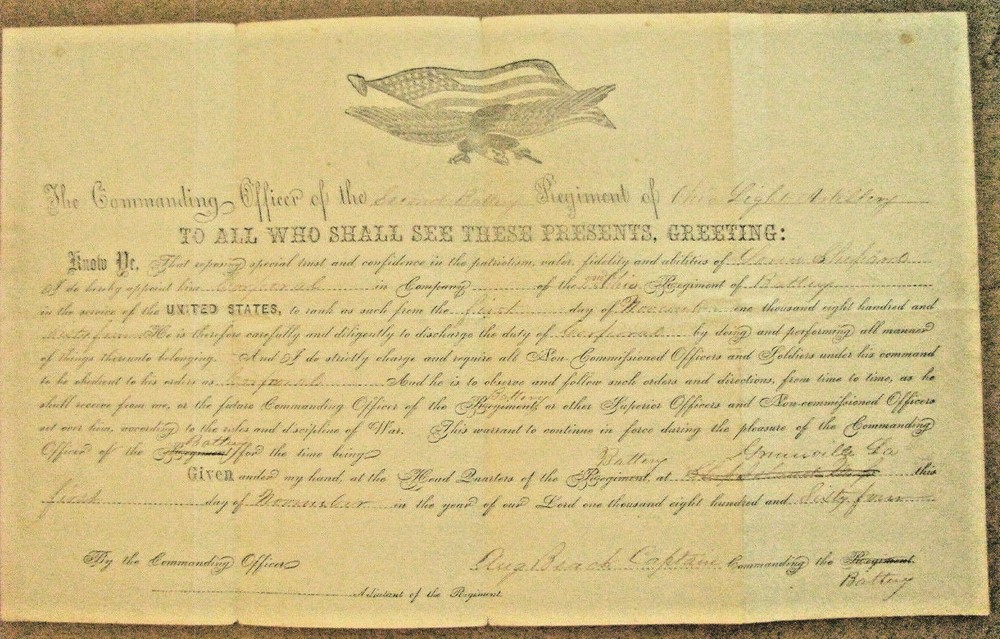 The Commanding Officer of the Second Battery Regiment of Ohio Light Artillery
TO ALL WHO SHALL SEE THESE PRESENTS, GREETING:
Know Ye. That reposing special trust and confidence in the patriotism, valor, fidelity and abilities of
I do hereby appoint him Corporal in Company of the Regiment of Battery
in the service of the UNITED STATES, to rank as such from the first day of November one thousand eight hundred and
sixty four He is therefore carefully and diligently to discharge the duty of Corporal by doing and performing all manner
of things thereunto belonging. And I do strictly charge and require all Non-Commissioned Officers and Soldiers under his command
to be obedient to his orders as Corporal And he is to observe and follow such orders and directions, from time to time, as he
Battery
shall receive from me, or the future Commanding Officer of the Regiment, or other Superior Officers and Non-commissioned Officers
set over him, according to the rules and discipline of War. This warrant to continue in force during the pleasure of the Commanding
Battery
Officer of the Regiment for the time being
Battery La
Given under my hand, at the Head Quarters of the Regiment, at this
first day of November in the year of our Lord one thousand eight hundred and Sixty four
By the Commanding Officer
Aug Beach Captain Commanding the Regiment.
Battery
Adjutant of the Regiment.